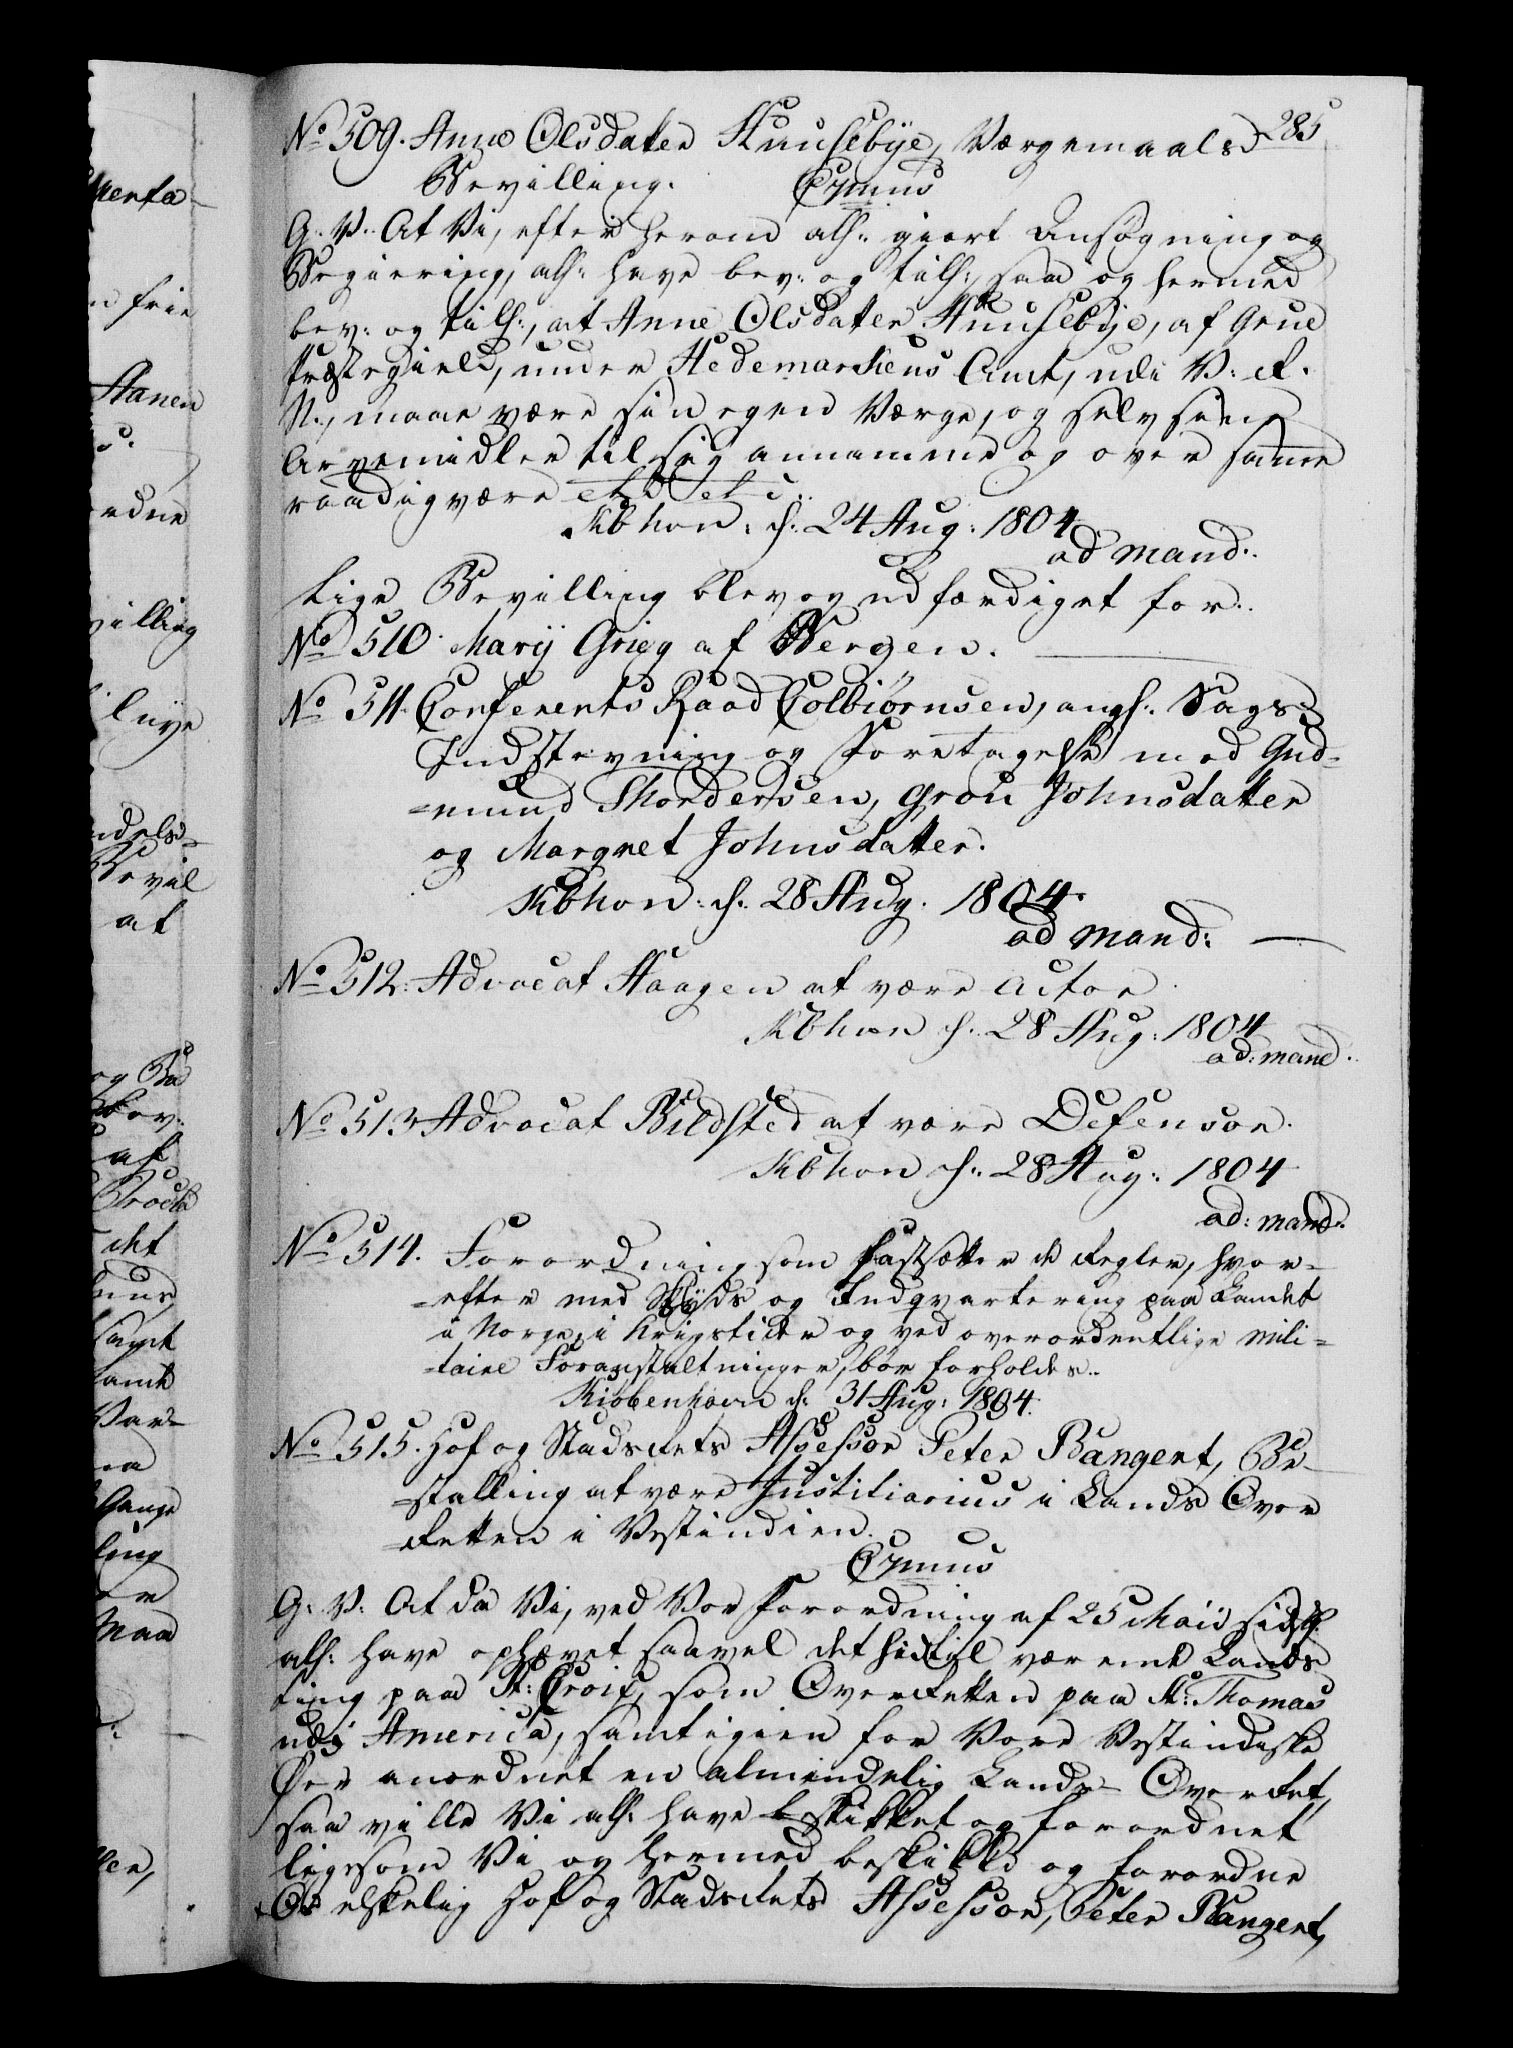 285
No 509. Anne Olsdatter Huusebÿe, Værgemaals
Bevilling. Cr͞mus
G. V. At Vi, efter herom alh: giort Ansøgning og
Begiering, alh: have bev: og tilh:, saa og hermed
bev: og tilh:, at Anne Olsdatter Huusebÿe, af Grue
Præstegield, under Hedemarkens Amt, udi V: R.
N., maae være sin egen Værge, og selv sine
Arvemidler til sig annamme og over samme
raadig være etc. etc.
Kbhon: d: 24 Aug: 1804
ad mand:.
Lige Bevilling blev og udfærdiget for.
No 510. Marij Grieg af Bergen.
No 511. Conferents Raad Colbiørnsen, angl: Sags
Indstevning og Foretagelse mod Gud-
=mund Thordersen, Grou Johnsdatter
og Margret Johnsdatter.
Kbhon: d: 28 Aug. 1804.
ad mand:
No 512. Advocat Haagen at være Actor
Kbhon d: 28 Aug: 1804
ad: mand.
No 513 Advocat Bildsted at være Defensor.
Kbhon d: 28 Aug: 1804
ad: mand:
No 514. Forordning som fastsætter de Regler, hvor-
=efter med Skÿds og Indqvartering paa Landet
i Norge, i Krigstider og ved overordentlige mili=
=taire Foranstaltninger, bør forholdes.
Kiøbenhavn d: 31 Aug: 1804.
No 515. Hof og Stads Rets Assessor Peter Bangert, Be-
=stalling at være Justitiarius i Lands Over
=Retten i Vestindien.
Cr͞mus
G: V: At da Vi, ved Vor Forordning af 25 Maii sidstl:
alh: have ophævet saavel det hidtil værende Lands
ting paa St: Croix, som OverRetten paa St: Thomas
udj America, samt igien for Vore Vestindiske
Øer anordnet en almindelig Lands-OverRet,
saa ville Vi alh: have beskikket og forordnet
ligesom Vi og hermed beskikke og forordne
Os elskelig Hof og Stads Rets Assessor, Peter Bangert,